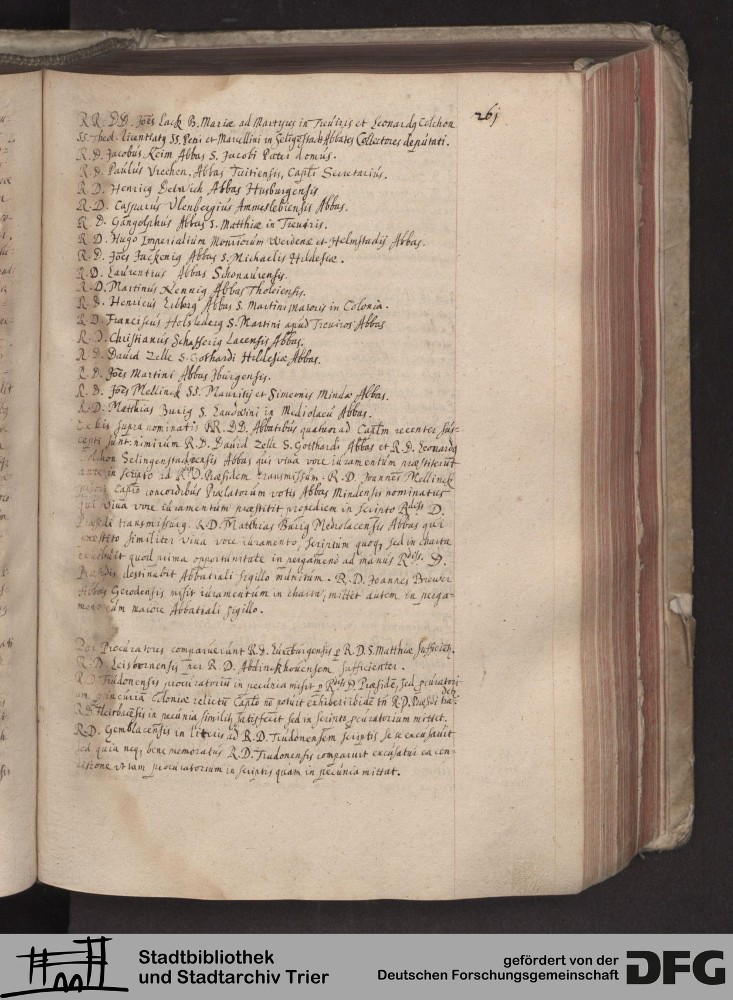 261
RR. DD. Joēs Lack B. Mariæ ad Martyres in Treuiris et Leonardq Colchon
SS. Theol. licentiatq SS. Petri et Marcellini in Seligestadt Abbates Collectores deputati.
R. D. Jacobus Keim Abbas S. Jacobi Petri domus.
R. D. Paulus Vrechen, Abbas Tuitiensis, Capli Secretarius.
R. D. Henricq Abbas Husburgensis
R. D. Casparus Vlenbergius Ammeslebiensis Abbas.
R. D. Gangolphus Abbas S. Matthiæ in Treuiris.
R. D. Hugo Imperialium Monriorum Werdenæ et Helmstadij Abbas.
R. D. Joēs Jackenig Abbas S. Michaelis Hildesiæ.
R. D. Laurentius Abbas Schonaurensis.
R. D. Martinus Kennig Abbas Tholeiensis.
R. D. Henricus Abbas S. Martini maioris in Colonia.
R. D. Franciscus S. Martini apud Treuiros Abbas
R. D. Christianus Lacensis Abbas.
R. D. Dauid Zelle S. Gothardi Hildesiæ Abbas.
R. D. Joēs Martini Abbas Iburgensis.
R. D. Joēs Mellinck SS. Mauritij et Simeonis Mindæ Abbas.
R. D. Matthias Burig S. in Mediolacu Abbas.
supra nominatis RR. DD. Abbatibus quatuor ad Caplm recenter sus-
cepti sunt: nimirum R. D. Dauid Zelle S. Gotthardi Abbas et R. D. Leonardq
Colchon Selingenstadiensis Abbas qui viua voce iuramentum præstiterūt
ante in scripto ad R. D. Præsidem transmissum. R. D. Joannes Mellinck
Caplo concordibus Prælatorum votis Abbas Mindensis nominatus
qui viua voce iuramentum præstitit propediem in scripto Rdiss. D.
Præsidi transmissurq. R. D. Matthias Burig Mediolacensis Abbas qui
præstito similiter viua voce iuramento, scriptum quoq, sed in charta
exhibuit quod prima opportunitate in pergameno ad manus Rdiss. D.
Præsidis destinabit Abbatiali sigillo munitum. R. D. Joannes Briewer
Abbas Gerodensis misit iuramentum in charta, mittet autem in perga-
meno cum maiore Abbatiali sigillo.
Per Procuratores comparuerunt R. D. Luxburgensis p R. D. S. Matthiæ sufficien.
R. D. Leisbornensis per R. D. Abdinckhouensem sufficienter.
R. D. Trudonensis procuratorium in pecunia misit p Rdiss D. Præsidē, sed
in Coloniæ relictū Caplo nō potuit exhiberi ibidē tn R. D. Præsidi
R. D. in pecunia similiter satisfecit sed in scripto pcuratorium mittet.
R. D. Gemblacensis in litteris ad R. D. Trudonensem scriptis se se excusauit
sed quia neq, bene memoratus R. D. Trudonensis comparuit excusatur ea con-
ditione vt tam procuratorium in scriptis quam in pecunia mittat.
Stadtbibliothek
und Stadtarchiv Trier
gefördert von der
Deutschen Forschungsgemeinschaft
DFG